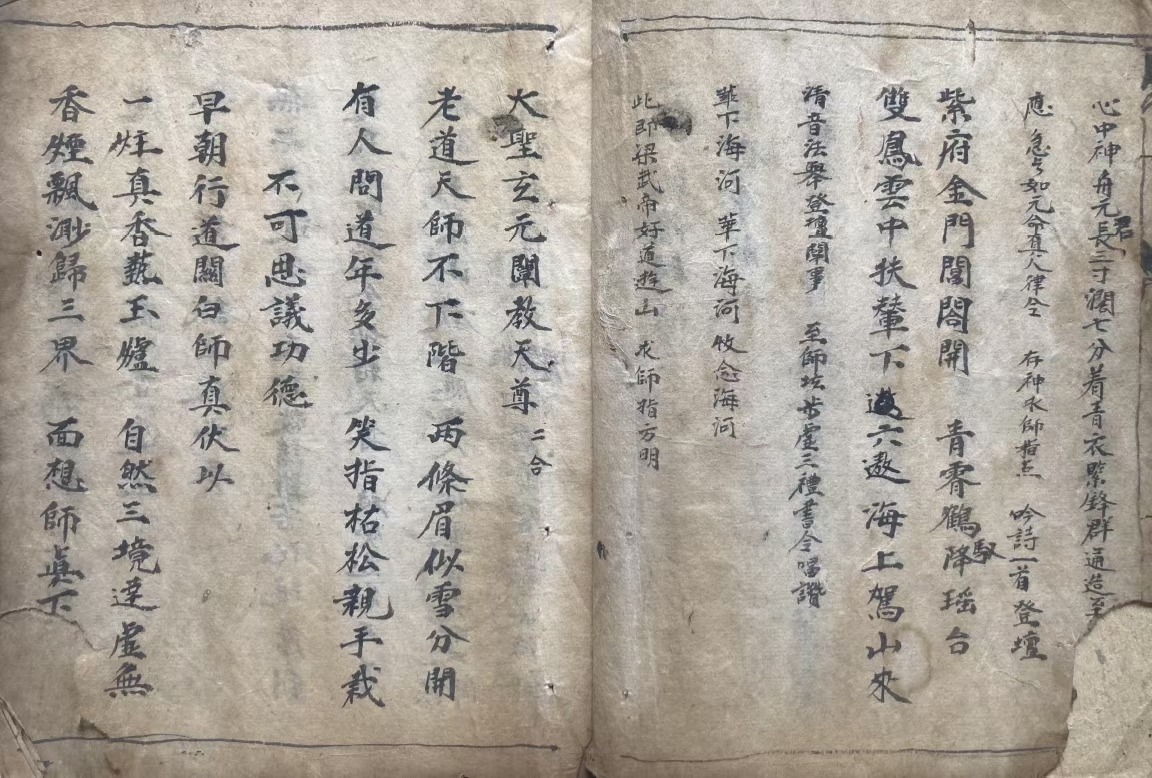 心中神舟元君長三寸濶七分着青衣緊鋒群通造至
應 急急如元命真人律令 存神水師指点 吟詩一首登壇
紫府金門闔閤開 青霄鶴馭降瑤台
雙鳳雲中扶輦下 遊六遨海上駕山來
清音法舉登壇闡事 至師坛步虛三禮書令唱讚
華下海河 華下海河 攸念海河
此即梁武帝好道遊山 求師指方明
大聖玄元闡教天尊 二合
老道天師不下階 两條眉似雪分開
有人問道年多少 笑指枯松親手栽
不可思議功德
早朝行道關白師真伏以
一炷真香爇玉爐 自然三境達虛無
香煙飄渺歸三界 面想師真下